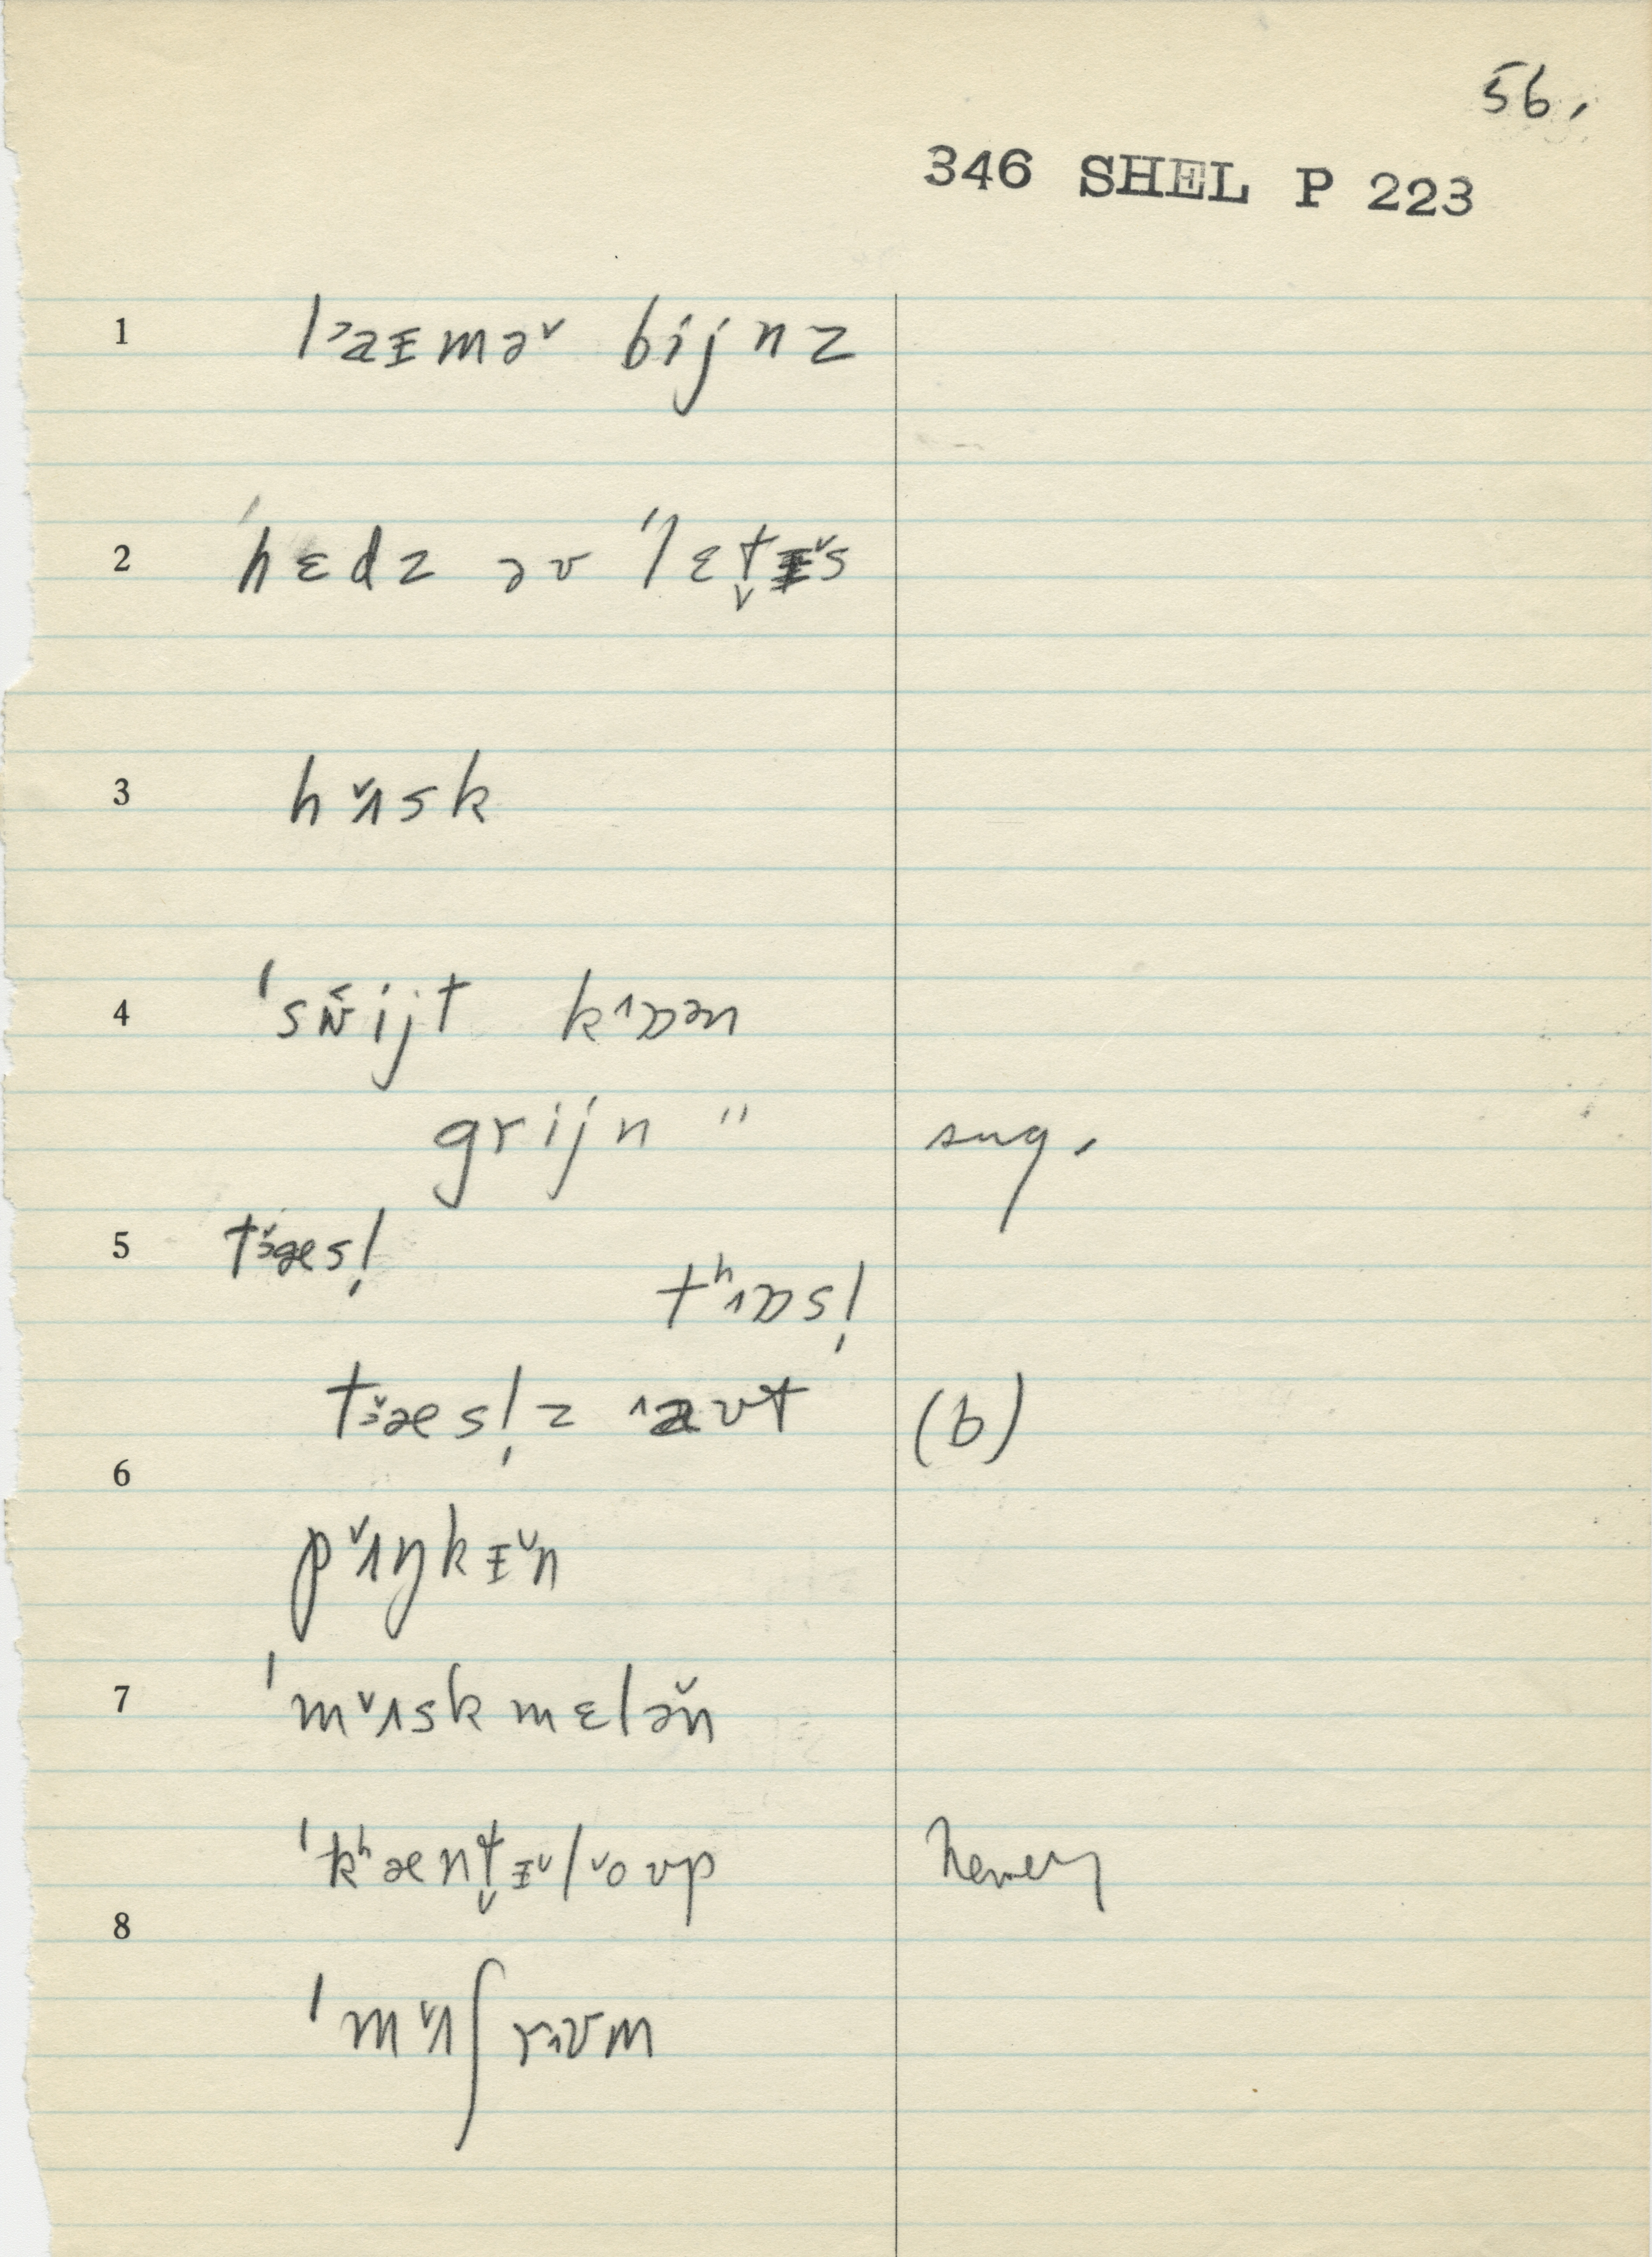 56.
346 SHEL P 223
1 l˃aɪmə˅ bijnz
2 ˈhɛdz əv ˈlɛt̬ɪ˅s
3 h˅ʌsk
4 ˈsw̌ijt k˄ɒən
grijn " sug.
5 t˅ɜæs!
tʰ˄ɒs!
t˅ɜæs!z ˄aʊt (b)
6
p˅ʌŋkɪ˅n
7 ˈm˅ʌskmɛlə̌n
ˈkʰænt̬ɪ˅l˅oʊp
8
ˈm˅ʌʃr˄ʊm